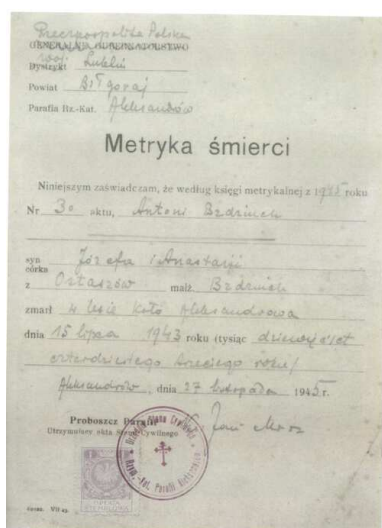 Rzeczpospolita Polska
GENERALNE GUBERNATORSTWO
woj. Lublin
Dystrykt
Powiat Biłgoraj
Parafia Rz.-Kat. Aleksandrów
Metryka śmierci
Niniejszym zaświadczam, że według księgi metrykalnej z 1945 roku
Nr 30 aktu, Antoni Bzdziuch
syn
córka Józefa i Anastazji
z małż. Bzdziuch
zmarł w lesie koło Aleksandrowa
dnia 15 lipca 1943 roku (tysiąc dziewięćset
czterdziestego trzeciego roku/
Aleksandrów, dnia 27 listopada 1945 r.
Proboszcz Parafii
Utrzymujący akta Stanu Cywilnego